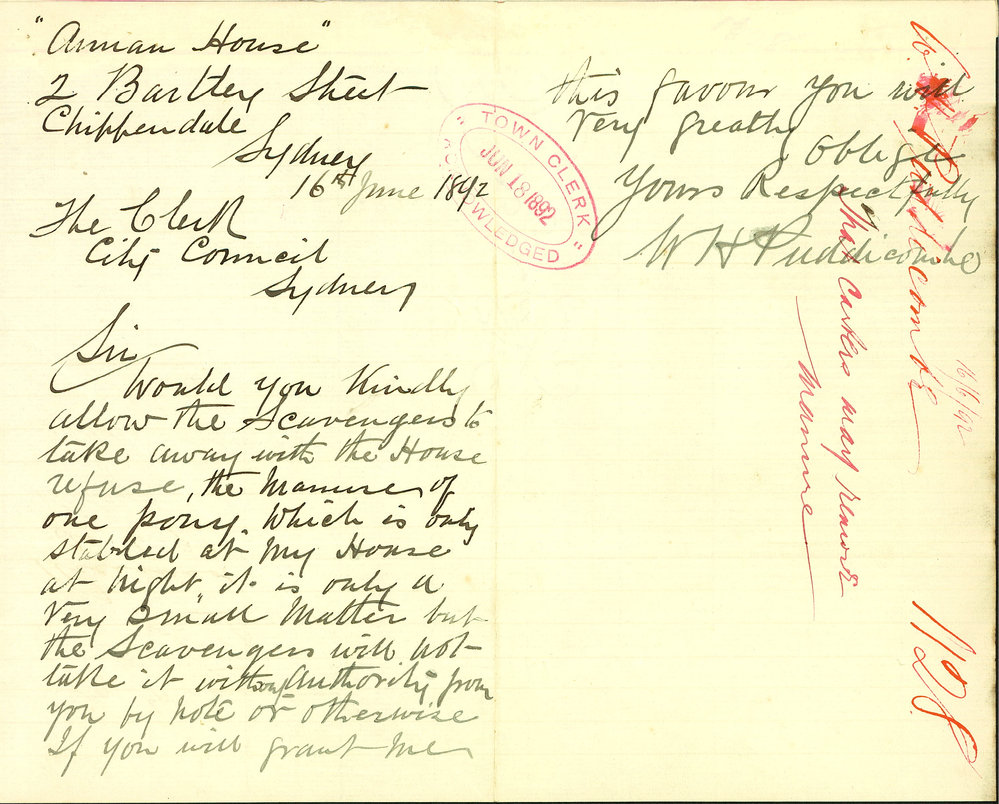 "Annan House"
2 Bartley Street
Chippendale
Sydney
16th June 1892
The Clerk
City Council
Sydney
Sir
Would you Kindly
allow the Scavengers to
take away with the House
refuse, the Manure of
one pony. Which is only
stabled at My House
at night it is only a
very Small Matter but
the Scavengers will not
take it without Authority from
you by note or otherwise
If you will grant Me
this favour you will
very greatly
oblige
Yours Respectfully
W H Puddicombe
TOWN CLERK
JUN 18 1892
ACKNOWLEDGED
Puddicombe
16/6/92
That Carters may remove
Manure